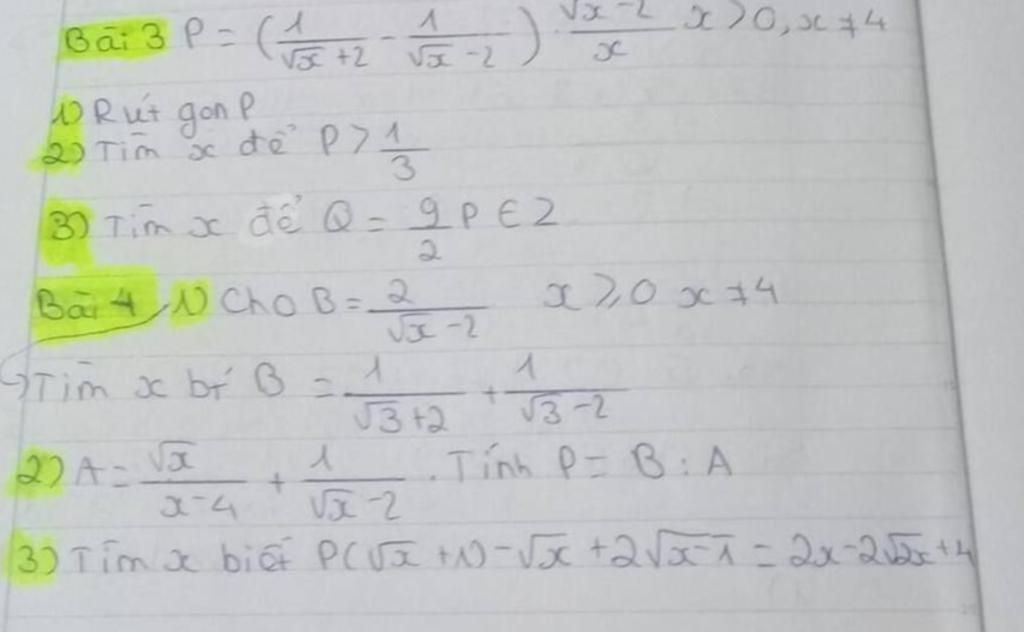 Bài 3 P = (1/(√x + 2) - 1/(√x - 2)) . (√x - 2)/x x > 0, x ≠ 4
1) Rút gọn P
2) Tìm x để P > 1/3
3) Tìm x để Q = 9/2 P ∈ Z
Bài 4 1) Cho B = 2/(√x - 2) x ≥ 0 x ≠ 4
Tìm x bt B = 1/(√3 + 2) + 1/(√3 - 2)
2) A = √x/(x - 4) + 1/(√x - 2) . Tính P = B : A
3) Tìm x biết P(√x + 1) - √x + 2√(x - 1) = 2x - 2√(2x) + 4